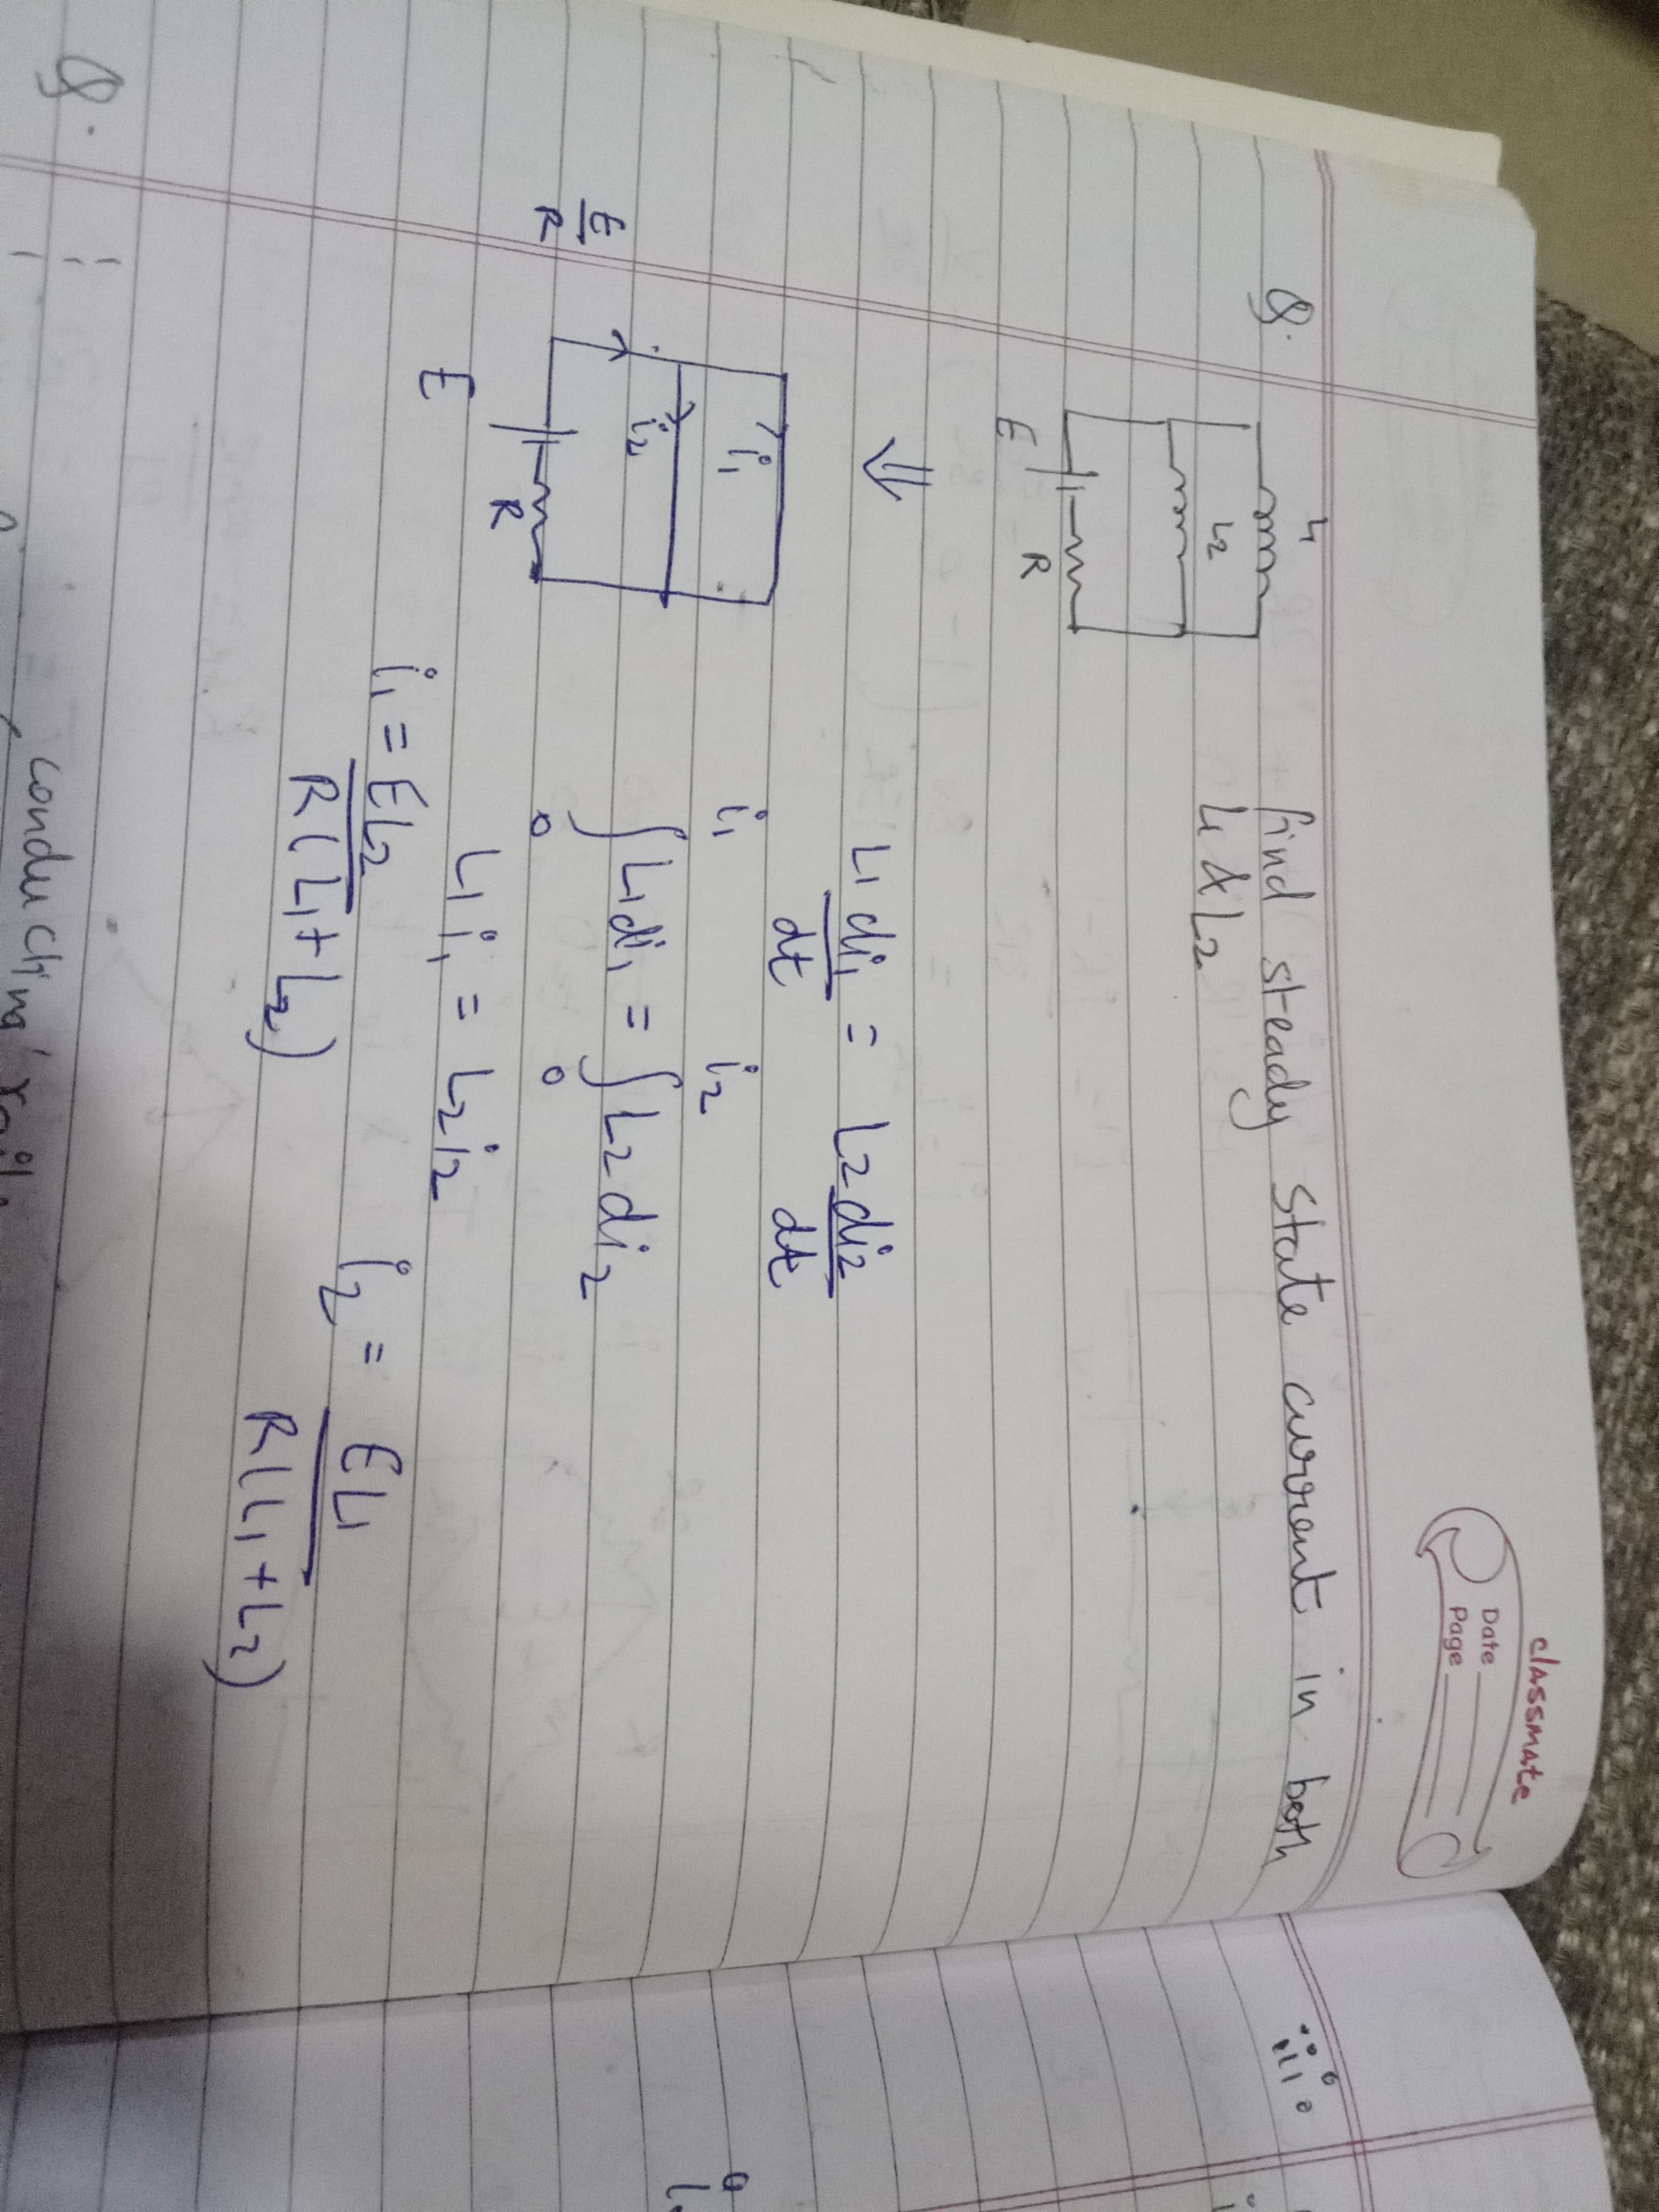 classmate
Date
Page
Q. find steady state current in both
L1 & L2
L1
L2
E R
⇓
L1 di1/dt = L2 di2/dt
i1
i2
E/R
E R
∫₀^i1 L1 di1 = ∫₀^i2 L2 di2
L1 i1 = L2 i2
i1 = EL2/R(L1+L2) i2 = EL1/R(L1+L2)
Q.
conducting